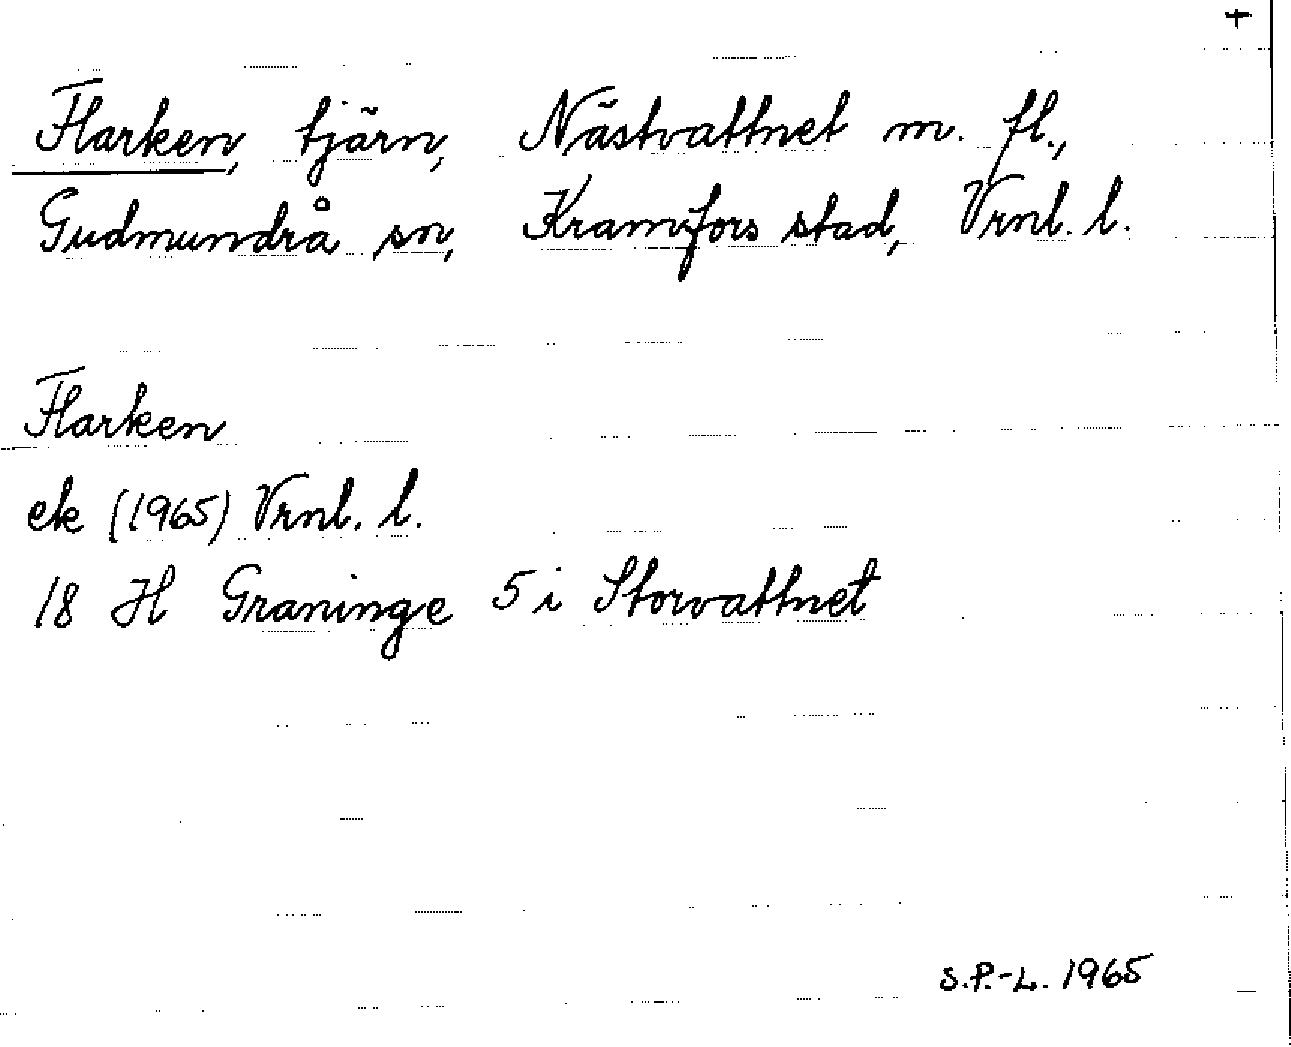 +
Flarken, tjärn, Nästvattnet m. fl.,
Gudmundrå sn, Kramfors stad, Vrnl. l.
Flarken
ek (1965) Vrnl. l.
18 H Graninge 5 i Storvattnet
S.P.-L. 1965